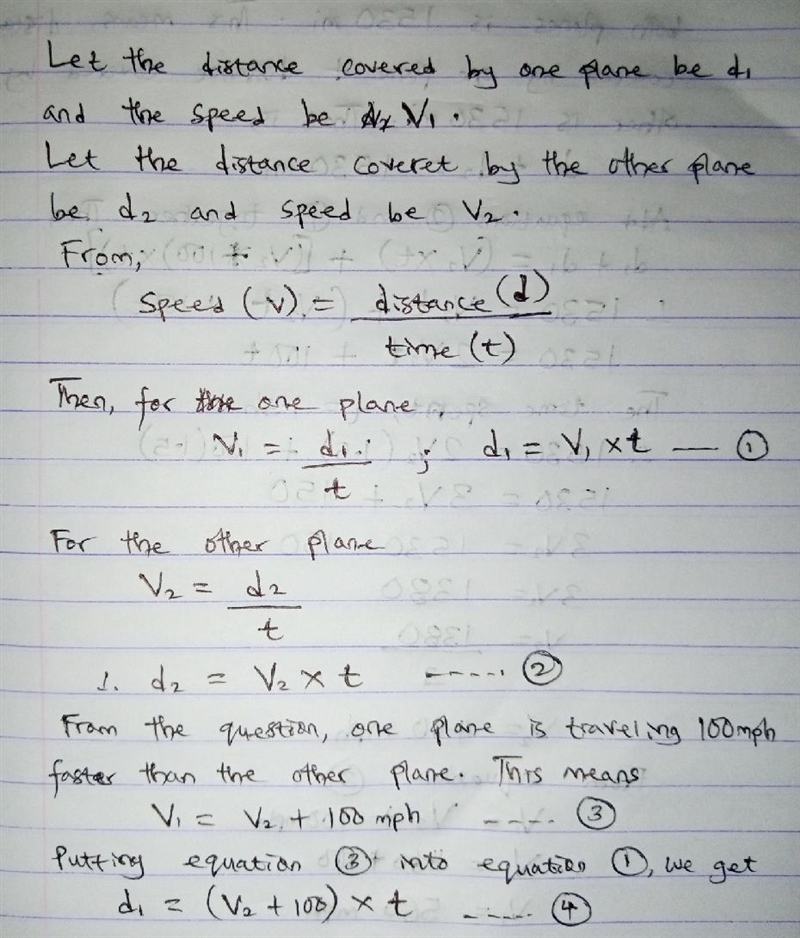 Let the distance covered by one plane be d₁
and the speed be V₁.
Let the distance coveret by the other plane
be d₂ and speed be V₂.
From;
Speed (v) = distance (d)
time (t)
Then, for one plane,
V₁ = d₁ ; d₁ = V₁ × t — ①
t
For the other plane
V₂ = d₂
t
∴ d₂ = V₂ × t ------ ②
From the question, one plane is traveling 100mph
faster than the other plane. This means
V₁ = V₂ + 100 mph ---- ③
Putting equation ③ into equation ①, we get
d₁ = (V₂ + 100) × t ----- ④